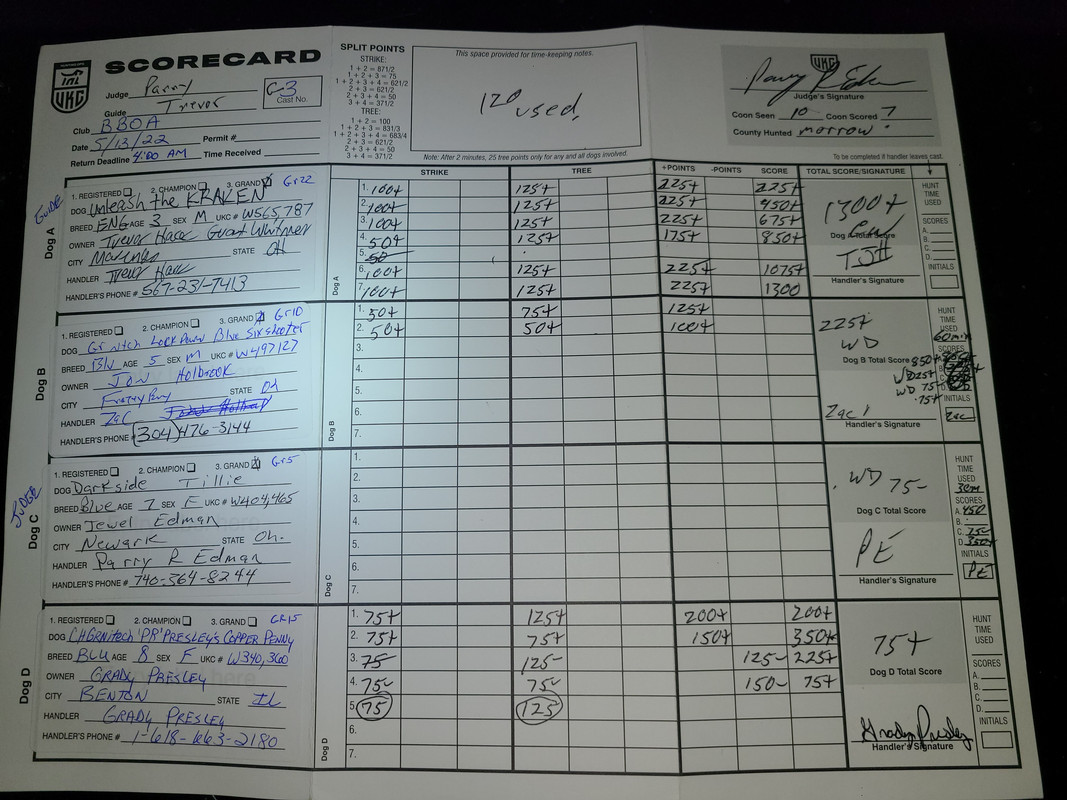 SCORECARD
UKC
Judge Parry
Guide Trevor
C-3
Cast No.
Club BBOA
Date 5/13/22 Permit #
Return Deadline 4:00 AM Time Received
SPLIT POINTS
STRIKE:
1 + 2 = 871/2
1 + 2 + 3 = 75
1 + 2 + 3 + 4 = 621/2
2 + 3 = 621/2
2 + 3 + 4 = 50
3 + 4 = 371/2
TREE:
1 + 2 = 100
1 + 2 + 3 = 831/3
1 + 2 + 3 + 4 = 683/4
2 + 3 = 621/2
2 + 3 + 4 = 50
3 + 4 = 371/2
This space provided for time-keeping notes.
120 used,
Note: After 2 minutes, 25 tree points only for any and all dogs involved.
UKC
Judge's Signature
Coon Seen 10 Coon Scored 7
County Hunted morrow
To be completed if handler leaves cast.
STRIKE TREE +POINTS -POINTS SCORE TOTAL SCORE/SIGNATURE
GUIDE
Dog A
1. REGISTERED 2. CHAMPION 3. GRAND Gr22
DOG Unleash the KRAKEN
BREED ENG AGE 3 SEX M UKC # W565,787
OWNER Trevor Hack Grant Whitmer
CITY STATE OH
HANDLER Trevor Hack
HANDLER'S PHONE # 567-231-7413
Dog A
1. 100+ 125+ 225+ 225+
2. 100+ 125+ 225+ 450+
3. 100+ 125+ 225+ 675+
4. 50+ 125+ 175+ 850+
5. 50
6. 100+ 125+ 225+ 1075+
7. 100+ 125+ 225+ 1300
1300+
Dog A Total Score
TJH
Handler's Signature
HUNT
TIME
USED
SCORES
A.
B.
C.
D.
INITIALS
Dog B
1. REGISTERED 2. CHAMPION 3. GRAND Gr10
DOG Gr Nitch Lock Down Blue Sixshooter
BREED Blu AGE 5 SEX M UKC # W497127
OWNER Jon Holbrook
CITY STATE Oh
HANDLER Zac
HANDLER'S PHONE # (304) 476-3144
Dog B
1. 50+ 75+ 125+
2. 50+ 50+ 100+
3.
4.
5.
6.
7.
225+
WD
Dog B Total Score
850+
WD 225+
WD 75-
75+
Zac
Handler's Signature
HUNT
TIME
USED
60 min
SCORES
INITIALS
Zac
JUDGE
Dog C
1. REGISTERED 2. CHAMPION 3. GRAND Gr5
DOG Darkside Tillie
BREED Blue AGE 7 SEX F UKC # W404,465
OWNER Jewel Edman
CITY Newark STATE Oh.
HANDLER Parry R Edman
HANDLER'S PHONE # 740-364-8244
Dog C
1.
2.
3.
4.
5.
6.
7.
WD 75-
Dog C Total Score
PE
Handler's Signature
HUNT
TIME
USED
30m
SCORES
A. 450
B.
C. 75-
D. 350+
INITIALS
PE
Dog D
1. REGISTERED 2. CHAMPION 3. GRAND GR15
DOG CH GRNITECH 'PR' PRESLEY'S COPPER PENNY
BREED BLU AGE 8 SEX F UKC # W340,360
OWNER GRADY PRESLEY
CITY BENTON STATE IL
HANDLER GRADY PRESLEY
HANDLER'S PHONE # 1-618-663-2180
Dog D
1. 75+ 125+ 200+ 200+
2. 75+ 75+ 150+ 350+
3. 75- 125- 125- 225+
4. 75- 75- 150- 75+
5. 75 125
6.
7.
75+
Dog D Total Score
Grady Presley
Handler's Signature
HUNT
TIME
USED
SCORES
A.
B.
C.
D.
INITIALS